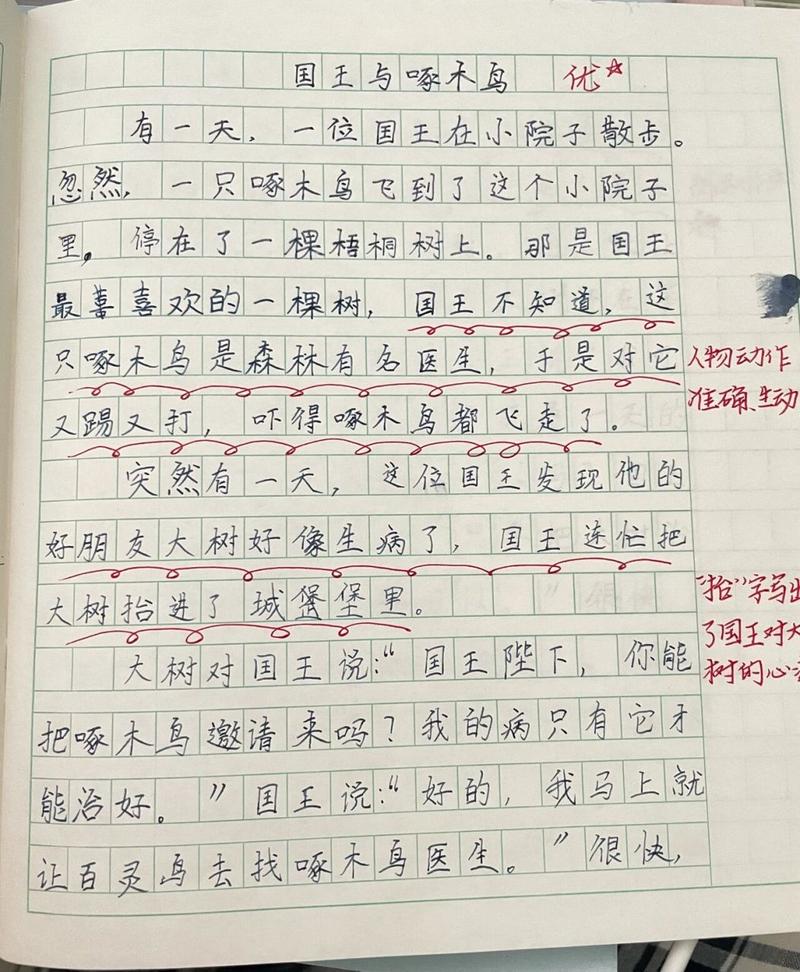 国王与啄木鸟 优☆
有一天，一位国王在小院子散步。
忽然，一只啄木鸟飞到了这个小院子
里，停在了一棵梧桐树上。那是国王
最喜喜欢的一棵树，国王不知道，这
只啄木鸟是森林有名医生，于是对它
又踢又打，吓得啄木鸟都飞走了。
人物动作
准确、生动
突然有一天，这位国王发现他的
好朋友大树好像生病了，国王连忙把
大树抬进了城堡堡里。
"抬"字写出
了国王对大
树的心
大树对国王说：“国王陛下，你能
把啄木鸟邀请来吗？我的病只有它才
能治好。”国王说：“好的，我马上就
让百灵鸟去找啄木鸟医生。”很快，